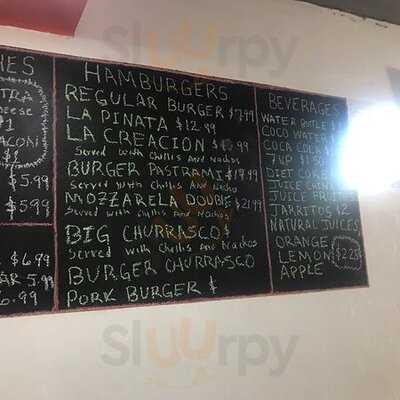 Sluurpy
HES
TRA
Cheese
$1
$1
$5.99
$599
$6.99
5.99
6.99
HAMBURGERS
REGULAR BURGER $7.99
LA PINATA $12.99
LA CREACION $ 99
Served with Chills And Nachos
BURGER PASTRAMI $19.99
Served with Chills And Nacho
MOZZARELA DOUBLE $21.99
Served with Chills And Nachos
BIG CHURRASCO $
Served with Chills And Nachos
BURGER CHURRASCO
PORK BURGER $
BEVERAGES
WATER BOTTLE $
COCO WATER
COCA COLA
7UP $1.50
DIET COKE
JUICE
JUICE
JARRITOS $2
NATURAL JUICES
ORANGE
LEMON $2.25
APPLE
Sluurpy